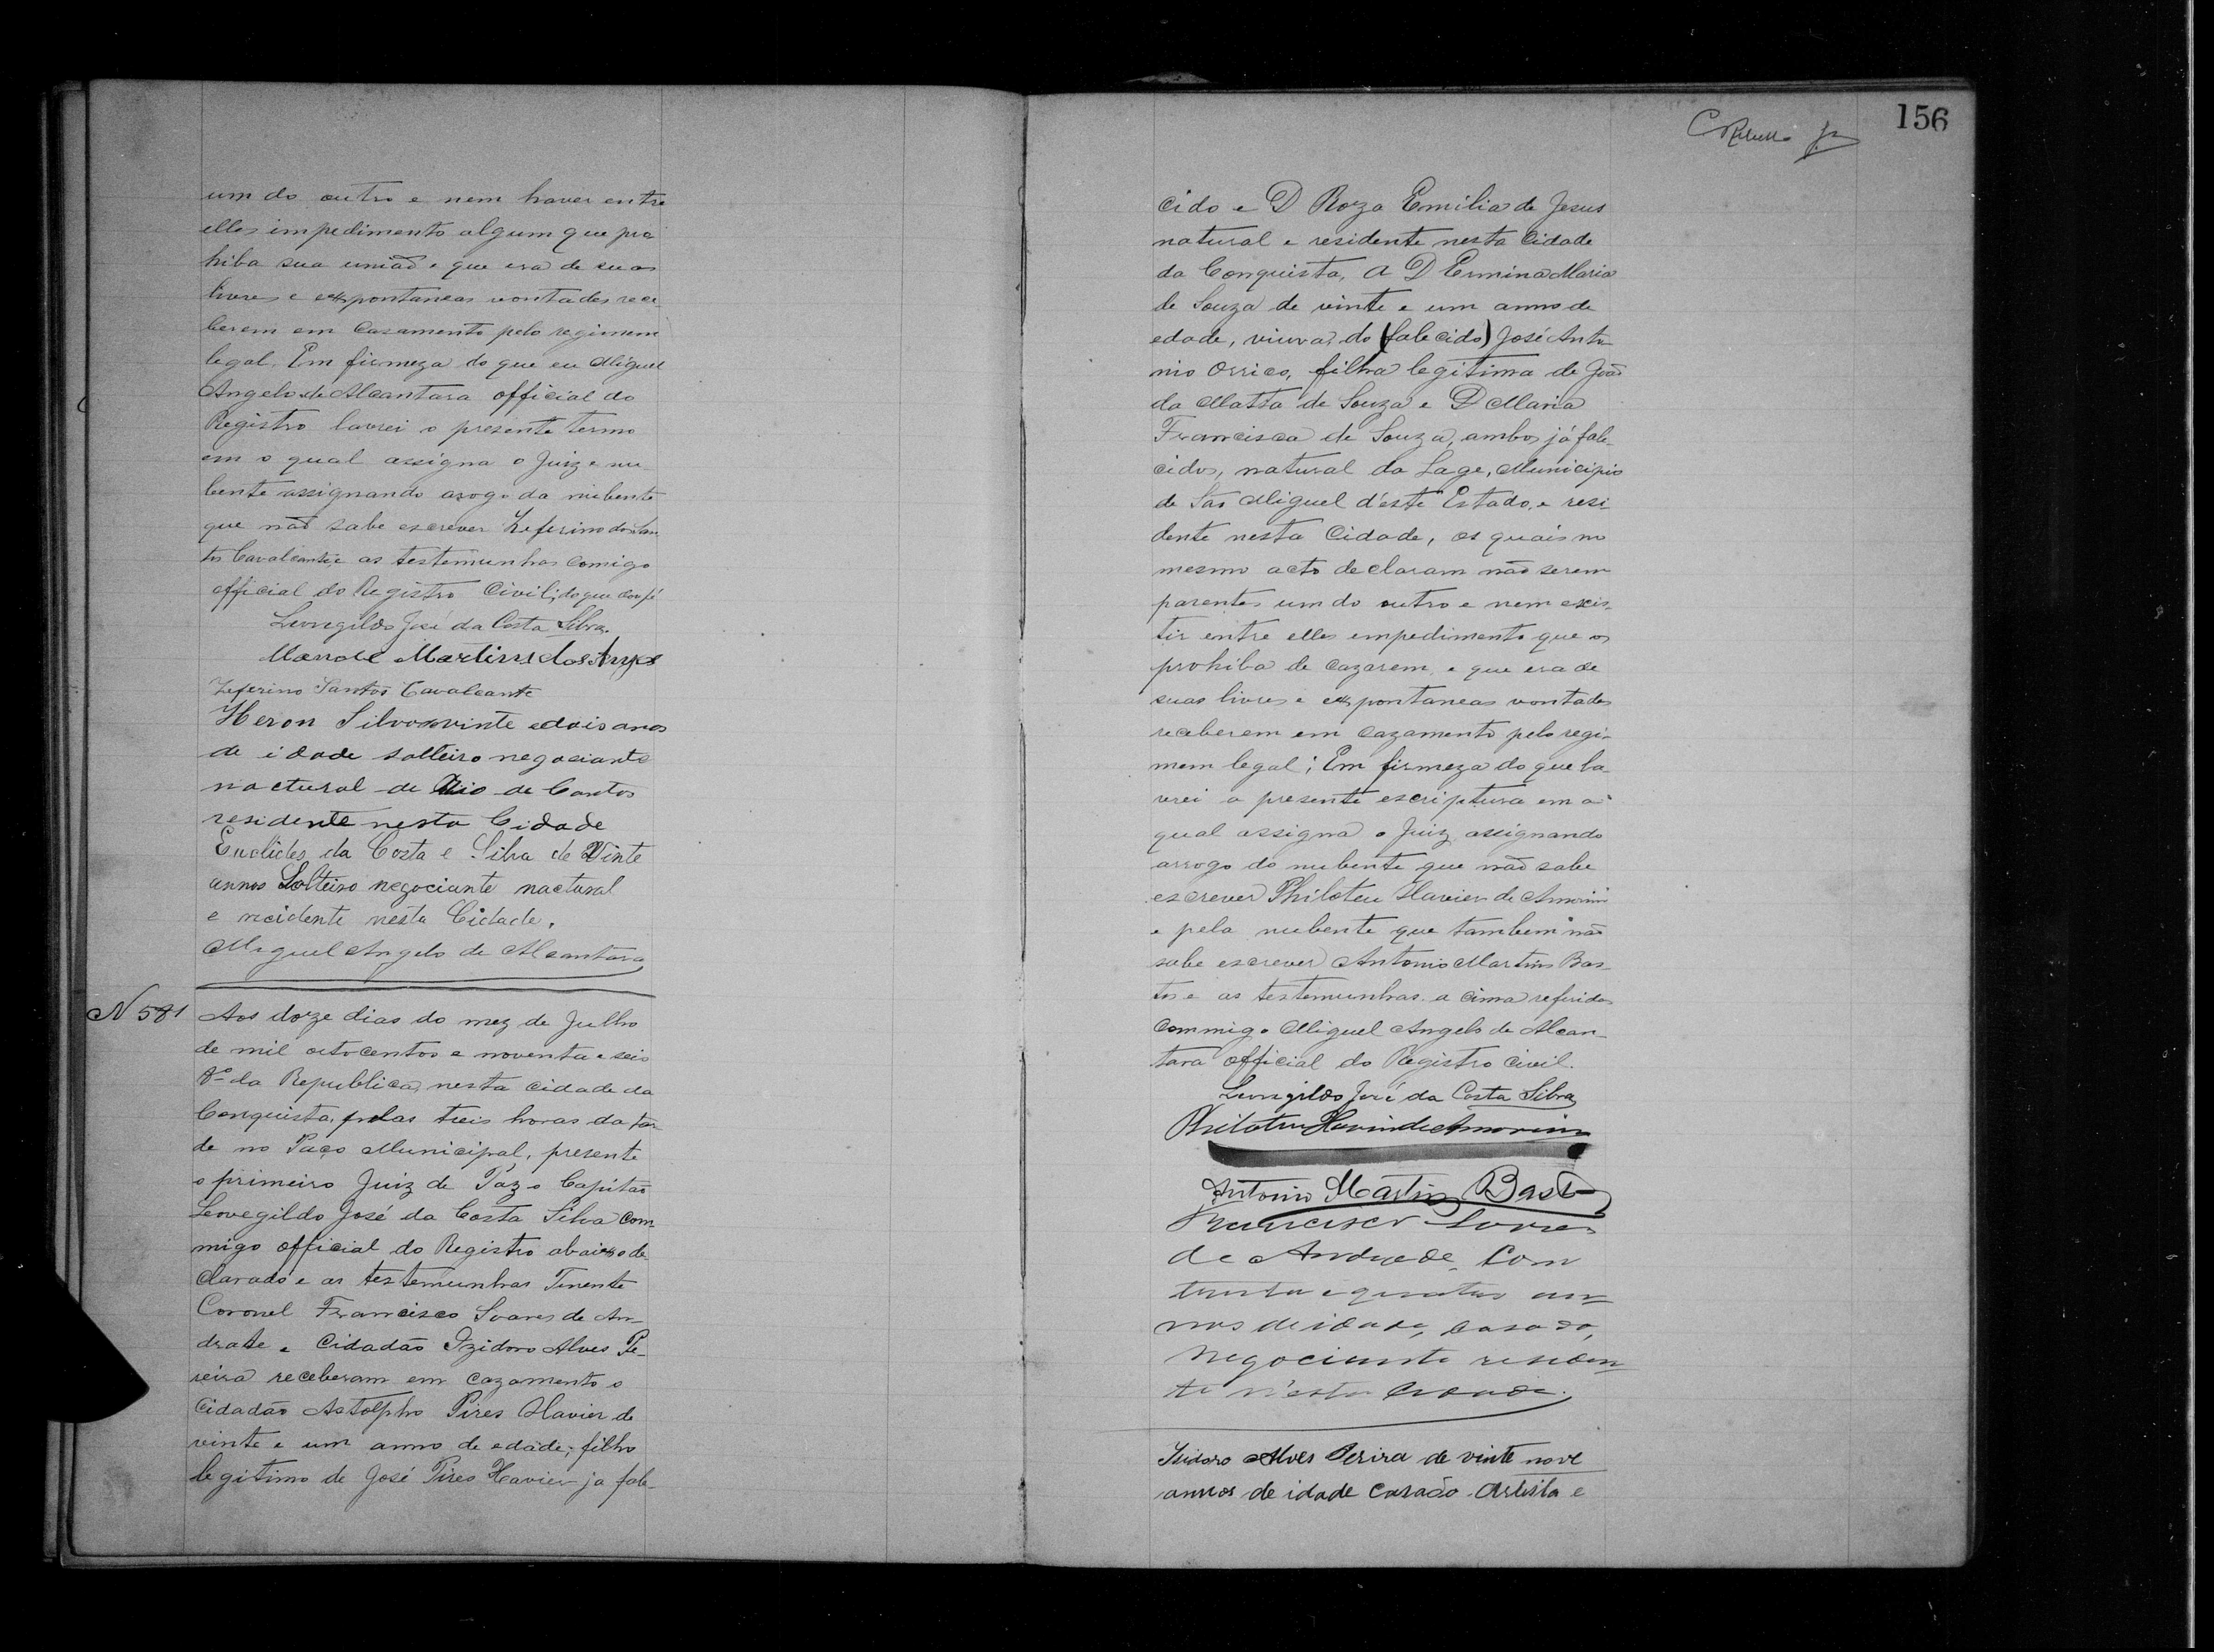 um do outro e nem haver entre
elles impedimento algum que pro
hiba sua união e que era de suas
livres e expontaneas vontades rece
berem em Casamento pelo regimem
legal. Em firmeza do que eu Miguel
Angelo de Alcantara official do
Registro lavrei o presente termo
em o qual assigna o Juiz e nu
bente assignando arogo da nubente
que não sabe escrever Zeferino dos San
tos Cavalcante e as testemunhas comigo
official do Registro Civil; do que dou fé
Leovegildo José da Costa Silva.
Manoel Martins dos Anjos
Zeferino Santos Cavalcante
Heron Silva vinte e dois anos
de idade solteiro negociante
nactural de Rio de Contas
residente nesta Cidade
Euclides da Costa e Silva de Vinte
annos Solteiro negociante nactural
e recidente nesta Cidade.
Miguel Angelo de Alcantara
N 581
Aos doze dias do mez de Julho
de mil oitocentos e noventa e seis
8º da Republica, nesta cidade da
Conquista, pelas treis horas da tar
de no Paço Municipal, presente
o primeiro Juiz de Paz o Capitão
Leovegildo José da Costa Silva com
migo official do Registro abaixo de
clarado e as testemunhas Tenente
Coronel Francisco Soares de An
drade e Cidadão Izidoro Alves Pe-
reira receberam em cazamento o
Cidadão Astolpho Pires Xavier de
vinte e um anno de edade; filho
legitimo de José Pires Xavier ja fale-
156
cido e D Roza Emilia de Jesus
natural e residente nesta Cidade
da Conquista, a D Ermina Maria
de Souza de vinte e um annos de
edade, viuva, do (falecido) José Anto
nio Orrico, filha legitima de João
da Matta de Souza e D Maria
Francisca de Souza, ambos já fale-
cidos, natural da Lage, Municipio
de São Miguel d'este Estado, e resi
dente nesta Cidade, os quais no
mesmo acto declaram não serem
parentes um do outro e nem exis-
tir entre elles empedimento que os
prohiba de cazarem, e que era de
suas livres e expontaneas vontades
receberem em cazamento pelo regi-
mem legal; Em firmeza do que la
vrei a presente escriptura em a
qual assigna o Juiz, assignando
arrogo do nubente que não sabe
escrever Philoteu Xavier de Amorim
e pela nubente que tambem não
sabe escrever Antonio Martins Bas
tos e as testemunhas a cima referidas
Commigo Miguel Angelo de Alcan-
tara official do Registro civil.
Leovegildo José da Costa Silva
Philoteu Xavier de Amorim
Antonio Martins Bastos
Francisco Soares
de Andrade, com
trinta e quatro an
nos de idade, casado,
negociante residen
te n'esta Cidade.
Izidoro Alves Perira de vinte nove
annos de idade Casado Artista e